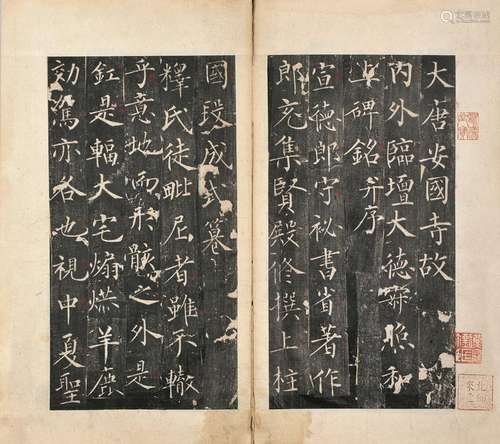 大唐安國寺故
内外臨壇大德寂照和
上碑銘并序
宣德郎守祕書省著作
郎充集賢殿修撰上柱
國段成式纂
釋氏徒毗尼者雖不轍
乎意地而形骸之外是
釭是輻大宅煽羊鹿
効馮亦各也視中夏聖